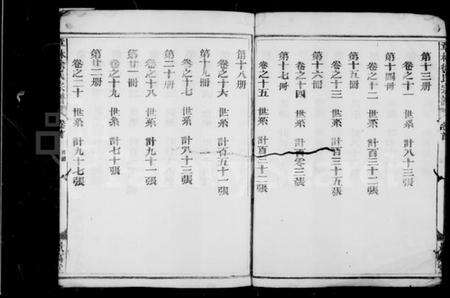 第十三册
卷之十一 世系 計八十三張
第十四册
卷之十二 世系 計百三十二張
第十五册
卷之十三 世系 計百三十五張
第十六册
卷之十四 世系 計百零三張
第十七册
卷之十五 世系 計百二十二張
第十八册
卷之十六 世系 計百五十一張
第十九册
卷之十七 世系 計八十三張
第二十册
卷之十八 世系 計九十一張
第廿一册
卷之十九 世系 計七十一張
第廿二册
卷之二十 世系 計九十七張